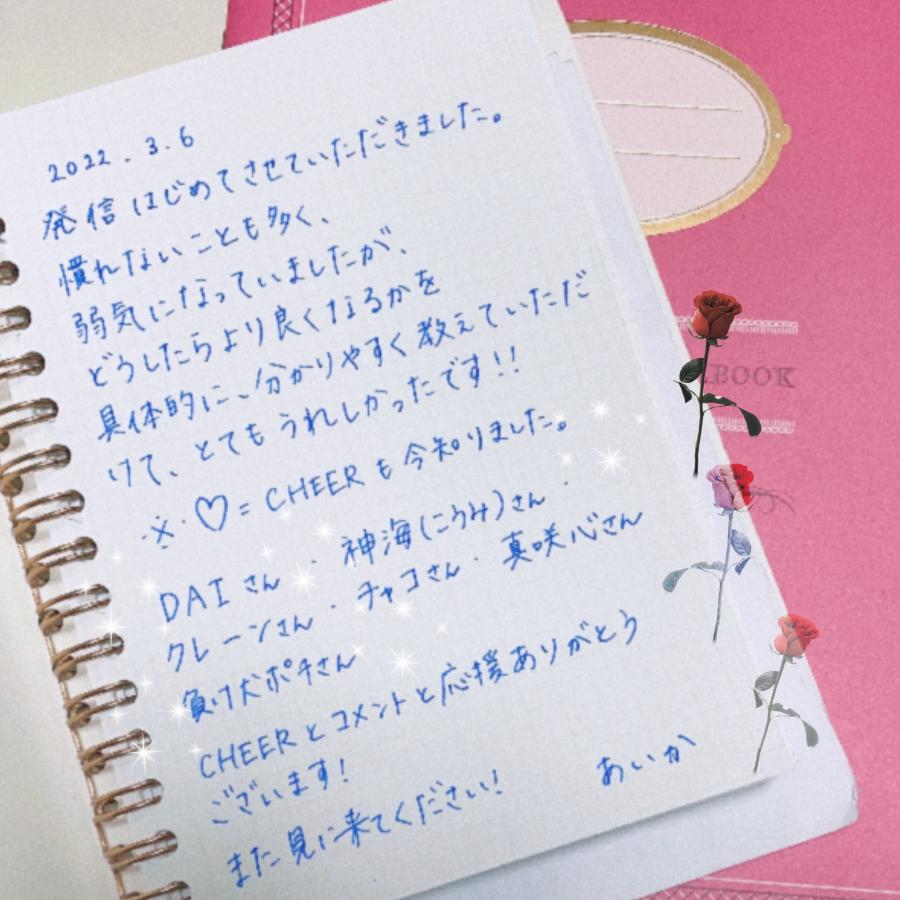 2022.3.6
発信はじめてさせていただきました。
慣れないことも多く、
弱気になっていましたが、
どうしたらより良くなるかを
具体的に、分かりやすく教えていただ
けて、とてもうれしかったです!!
※♡=CHEERも今知りました。
DAIさん・神海(こうみ)さん・
クレーンさん・チャコさん・真咲心さん
負け犬ポチさん
CHEERとコメントと応援ありがとう
ございます!
また見に来てください! あいか
BOOK